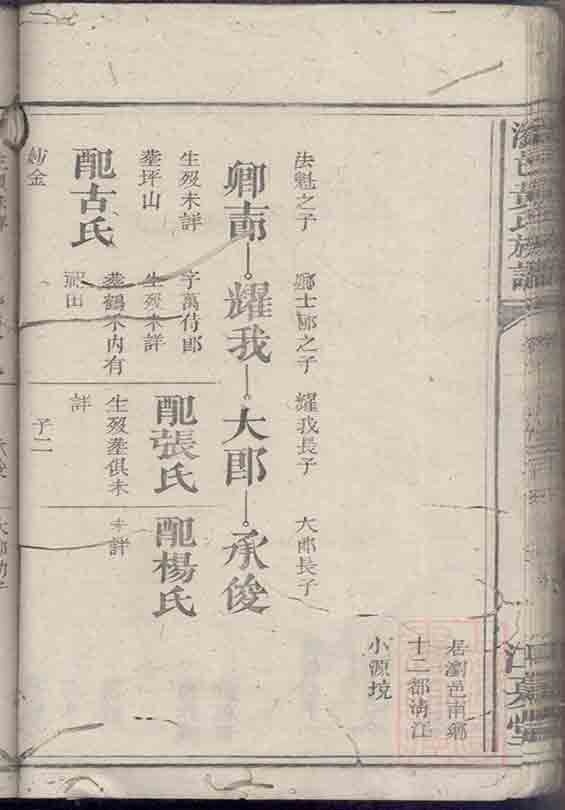 居瀏邑南鄉
十二都清江
小源境
法魁之子
鄉士郎之子
耀我長子
大郎長子
耀我
大郎
承俊
生歿未詳
葬坪山
配古氏
妣金
字萬侍郎
生歿未詳
葬鶴禾內有
祀田
配張氏
生歿葬俱未
詳
子二
配楊氏
未詳
黃氏族譜